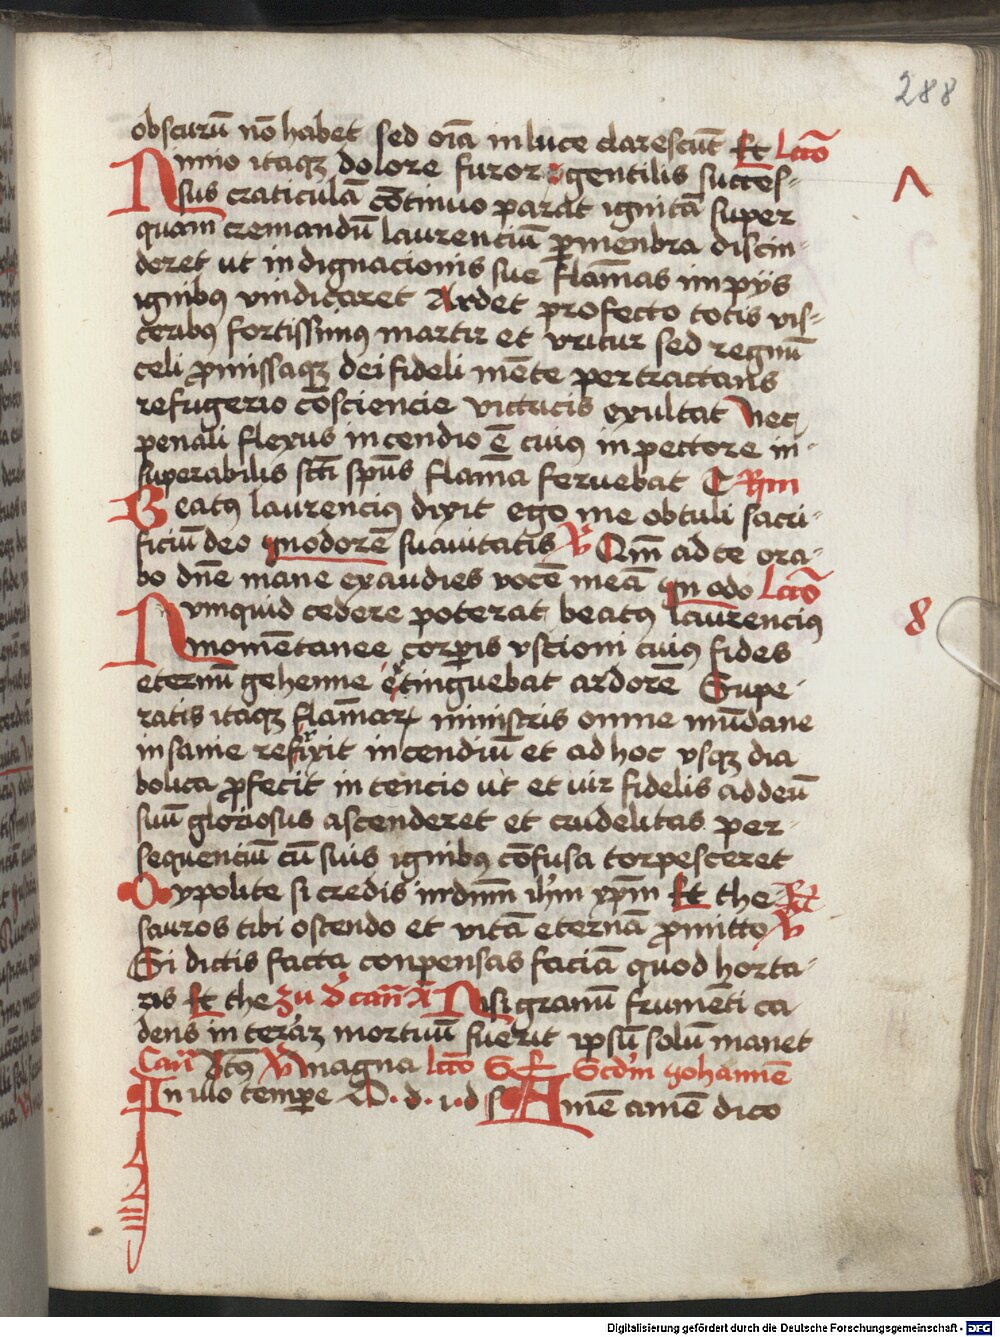 288
obscurū nō habet sed oīa in luce clarescūt Et lctō
Nimio itaqꝫ dolore furor gentilis succes-
sus craticulā cōtinuo parat ignitā super
quam cremandū laurenciū ꝑ menbra discin-
deret ut indignacionis sue flāmas impijs
ignibꝰ vindicaret Ardet profecto totis vis-
ceribꝰ fortissimꝰ martir et vritur sed regnū
celi ꝓmissaqꝫ dei fideli mēte pertractans
refugerio cōsciencie victacis exultat Nec
penali flexus incendio ē cuiꝰ in pectore in-
superabilis scti spūs flāma feruebat Rm
7
Beatꝰ laurenciꝰ dixit ego me obtuli sacri-
ficiū deo in odorē suauitatis V Qm̄ ad te ora-
bo dn̄e mane exaudies vocē meā In odo lctō
Nvmquid cedere poterat beatꝰ laurenciꝰ
8
momētanee corꝑis vstioni cuiꝰ fides
eternū gehenne extinguebat ardorē Supe-
ratis itaqꝫ flāmarꝝ ministris omne mūdane
insanie refrixit incendiū et ad hoc vsqꝫ dia
bolica ꝓfecit intencio ut et vir fidelis ad deū
suū gloriosus ascenderet et crudelitas per-
sequenciū cū suis ignibꝰ cōfusa torpesceret
O ypolite si credis in dnm̄ ihm̄ xpm̄ Et the R
sauros tibi ostendo et vitā eternā ꝓmitto V
Si dictis facta conpensas faciā quod horta-
ris Et the zu Nisi granū frumēti ca
dens in terā mortuū fuerit ipsū solū manet
V magna lctō S Scdm Johannē
In illo tempe D. d. i. d s Amē amē dico
Digitalisierung gefördert durch die Deutsche Forschungsgemeinschaft - DFG